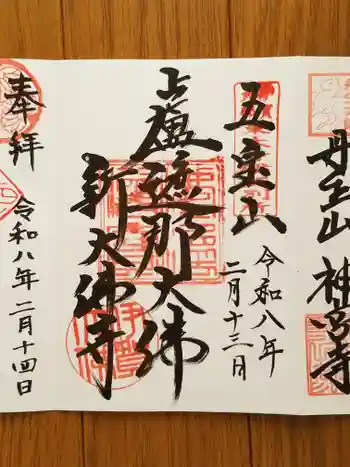 丹生山 神宮寺
五宝山
令和八年
二月十三日
盧遮那大佛
新大佛寺
奉拝
令和八年二月十四日